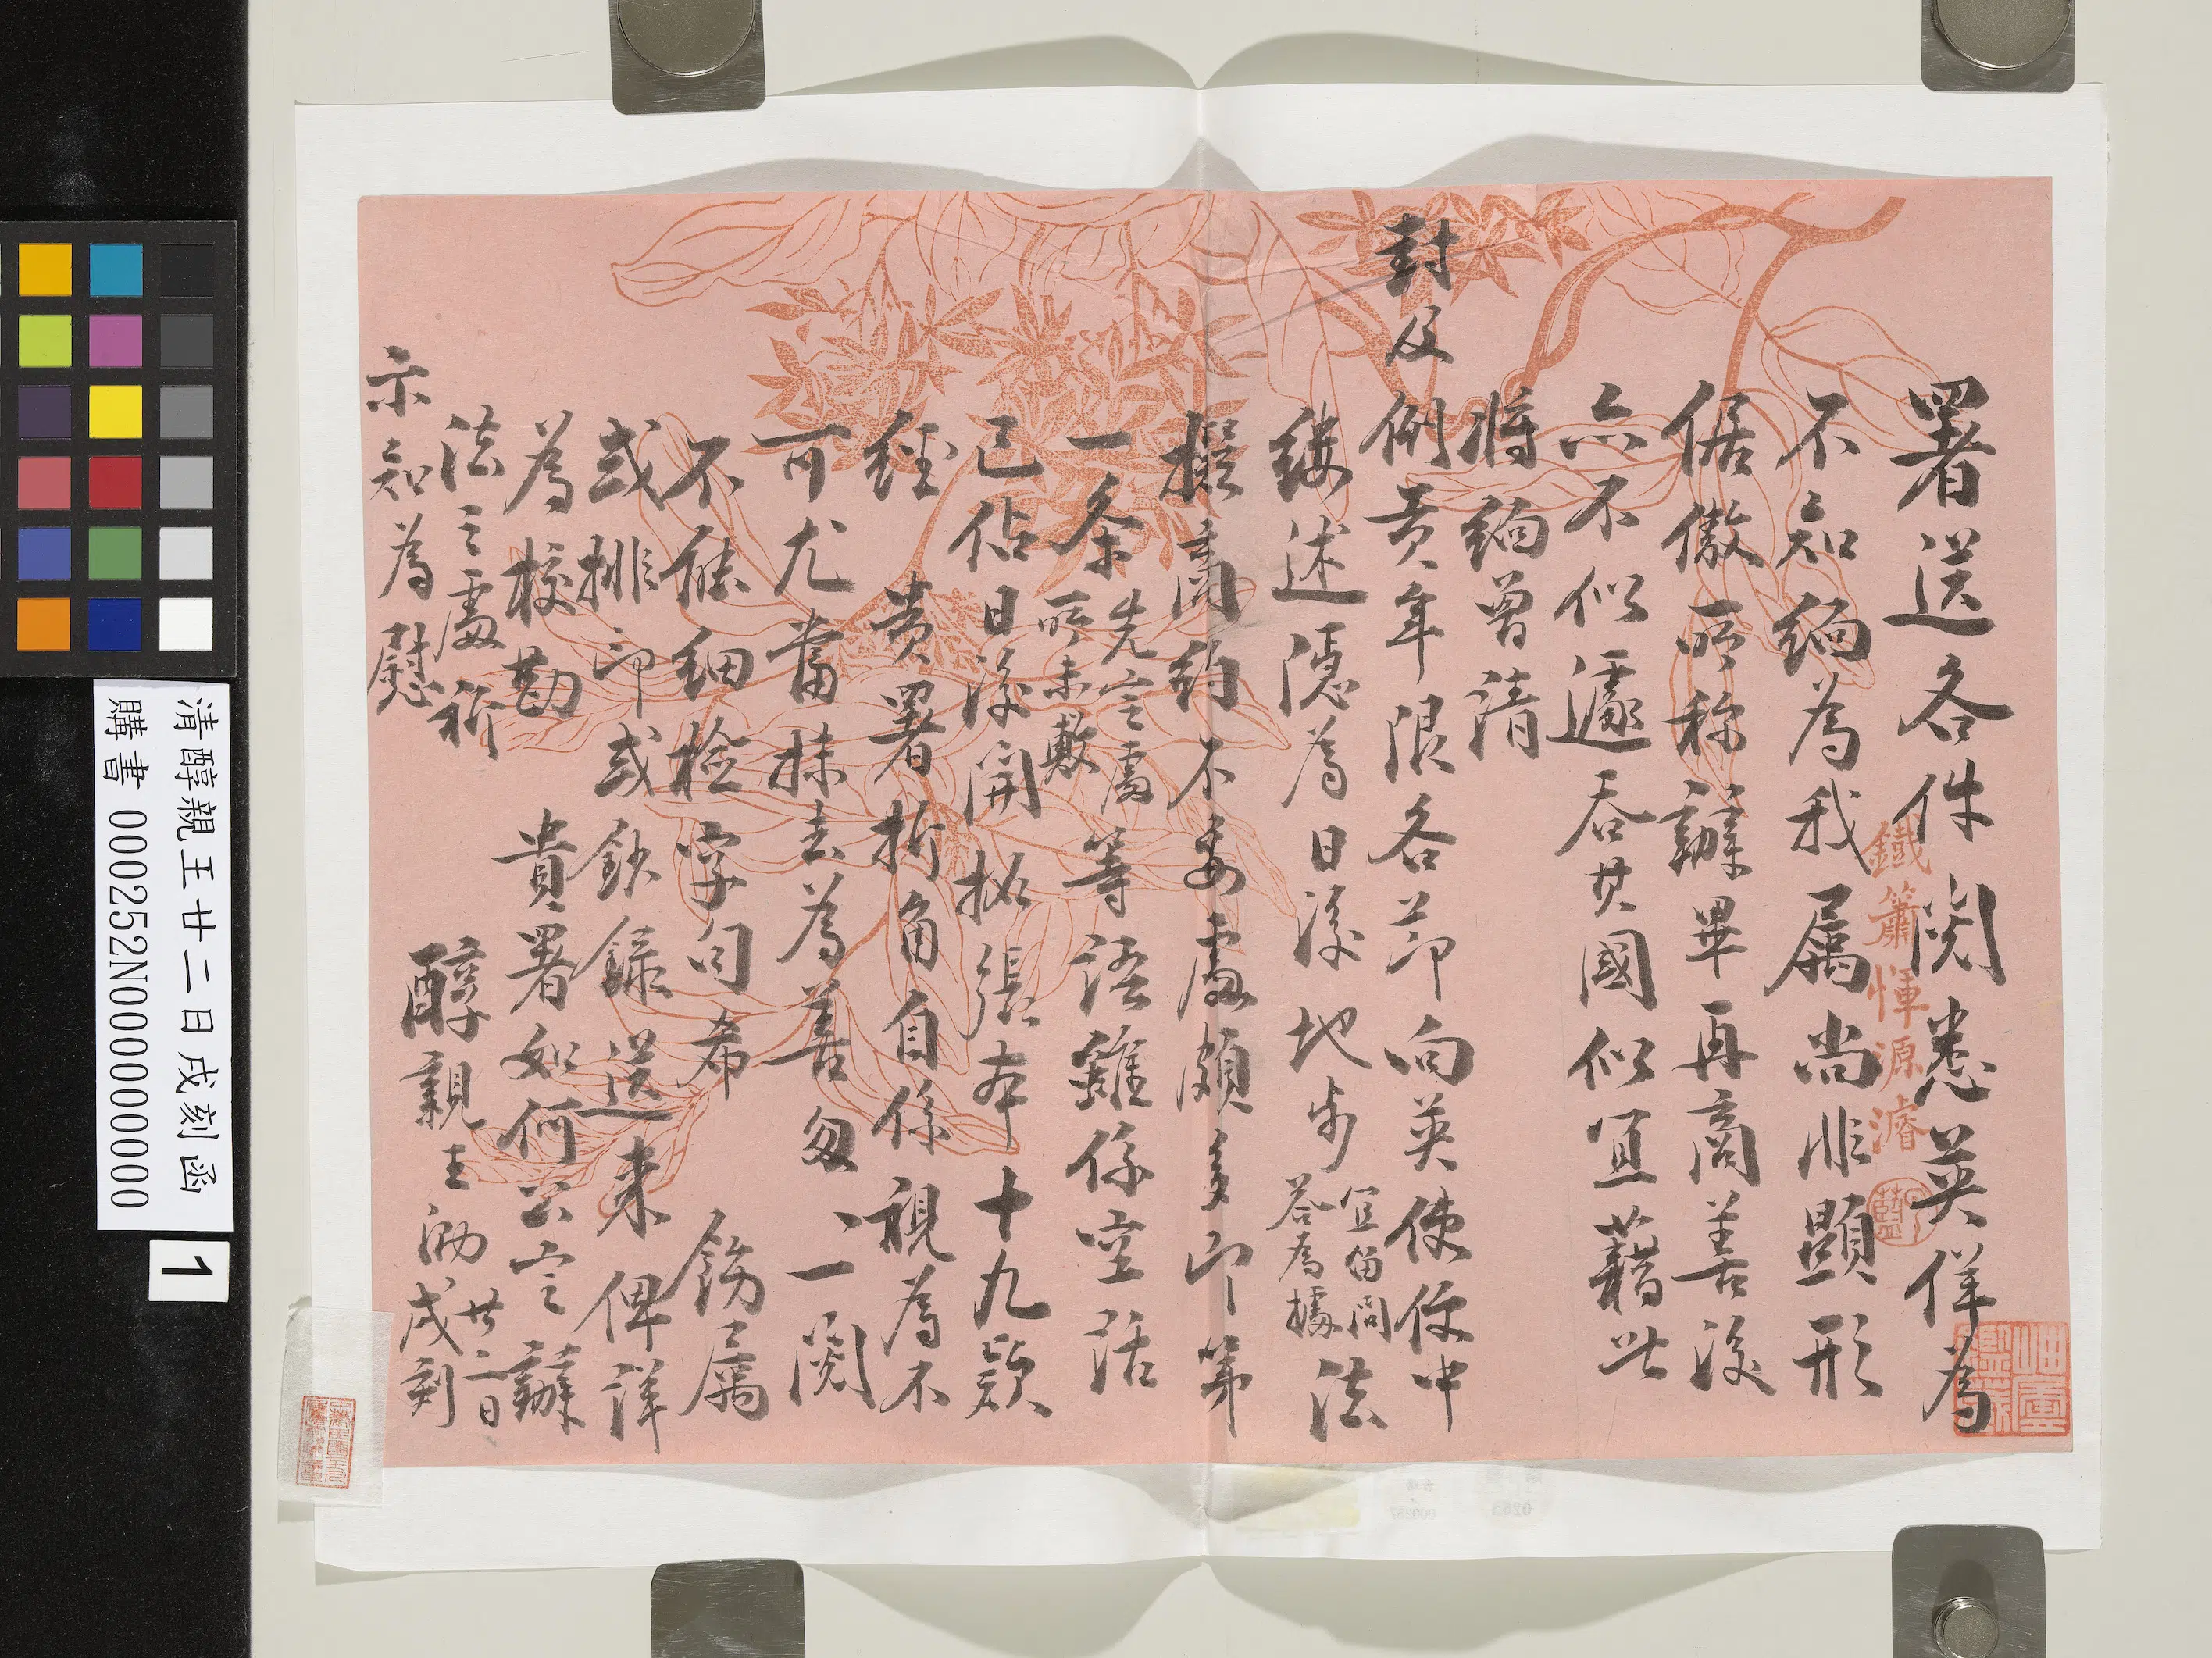 署送各件閱悉英佯為
不知緬為我屬尚非顯形
倨傲所称辦畢再商善後
六不似遽吞其國似宜藉此
將緬曾請
封及例貢年限各節向英使使中
縷述隱為日後地步宜留問答為據法
擬商約不妥處頗多即第
一条先定處所未敷等語雖係空話
已佔日後開拓張本十九款
經貴署折角自係視為不
可尤當抹去為善匆匆一閱
不能細檢字句希飭屬
或排印或鈔錄送來俾詳
為校勘貴署如何公定辦
法之處祈
示知為慰
醇親王泐廿二日戌刻
鐵簫惲源濬
清醇親王廿二日戌刻函
購書 000252N000000000
1